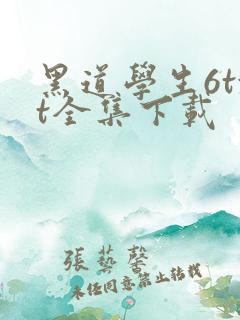 黑道學生6tx
t全集下載
張藝馨
未经同意禁止转载